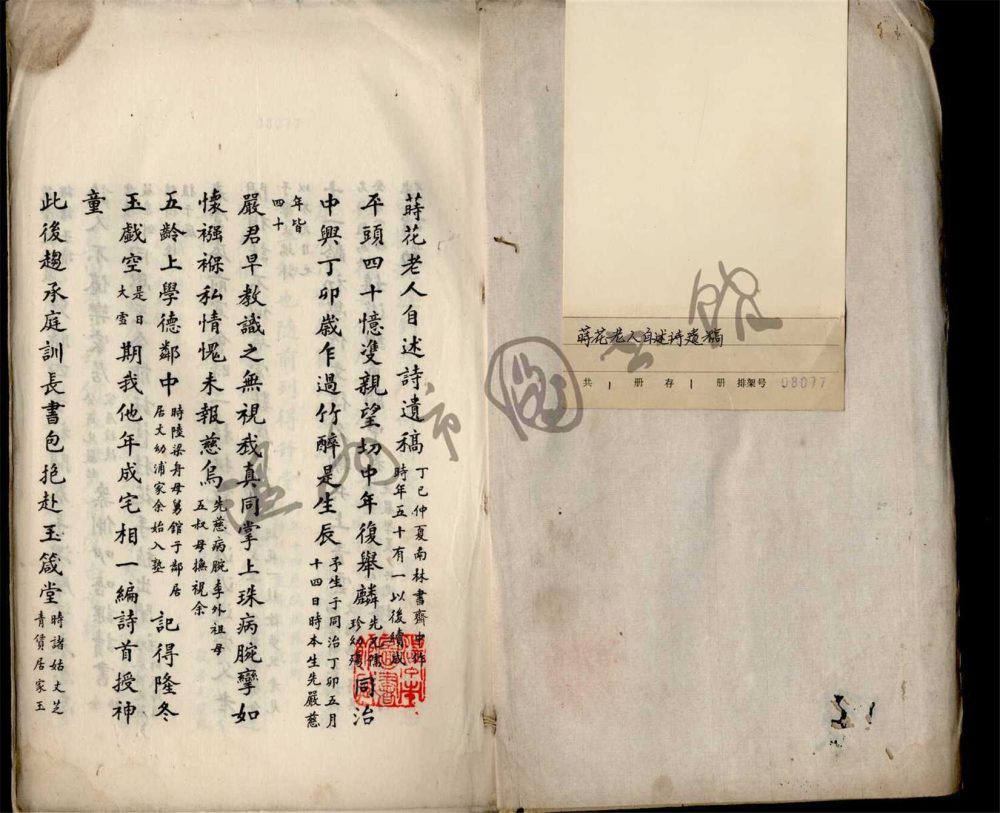 蒔花老人自述詩遺稿 丁巳仲夏南林書齋中作時年五十有一以後續成
平頭四十憶雙親望切中年復舉麟 先兄珍幼殤 同治
中興丁卯歲乍過竹醉是生辰 予生于同治丁卯五月十四日時本生先嚴慈
年皆四十
嚴君早教識之無視我真同掌上珠病腕攣如
懷襁褓私情愧未報慈烏 先慈病腕李外祖母五叔母撫視余
五齡上學德鄰中 時陸梁舟母舅館于鄰居居丈幼浦家余始入塾 記得隆冬
玉戲空 是日大雪 期我他年成宅相一編詩首授神
童
此後趨承庭訓長書包抱赴玉箴堂 時諸姑丈芝青賃居家玉
蒔花老人自述诗遗稿
共 1 册存 1 册 排架号 08077
温州市圖書館